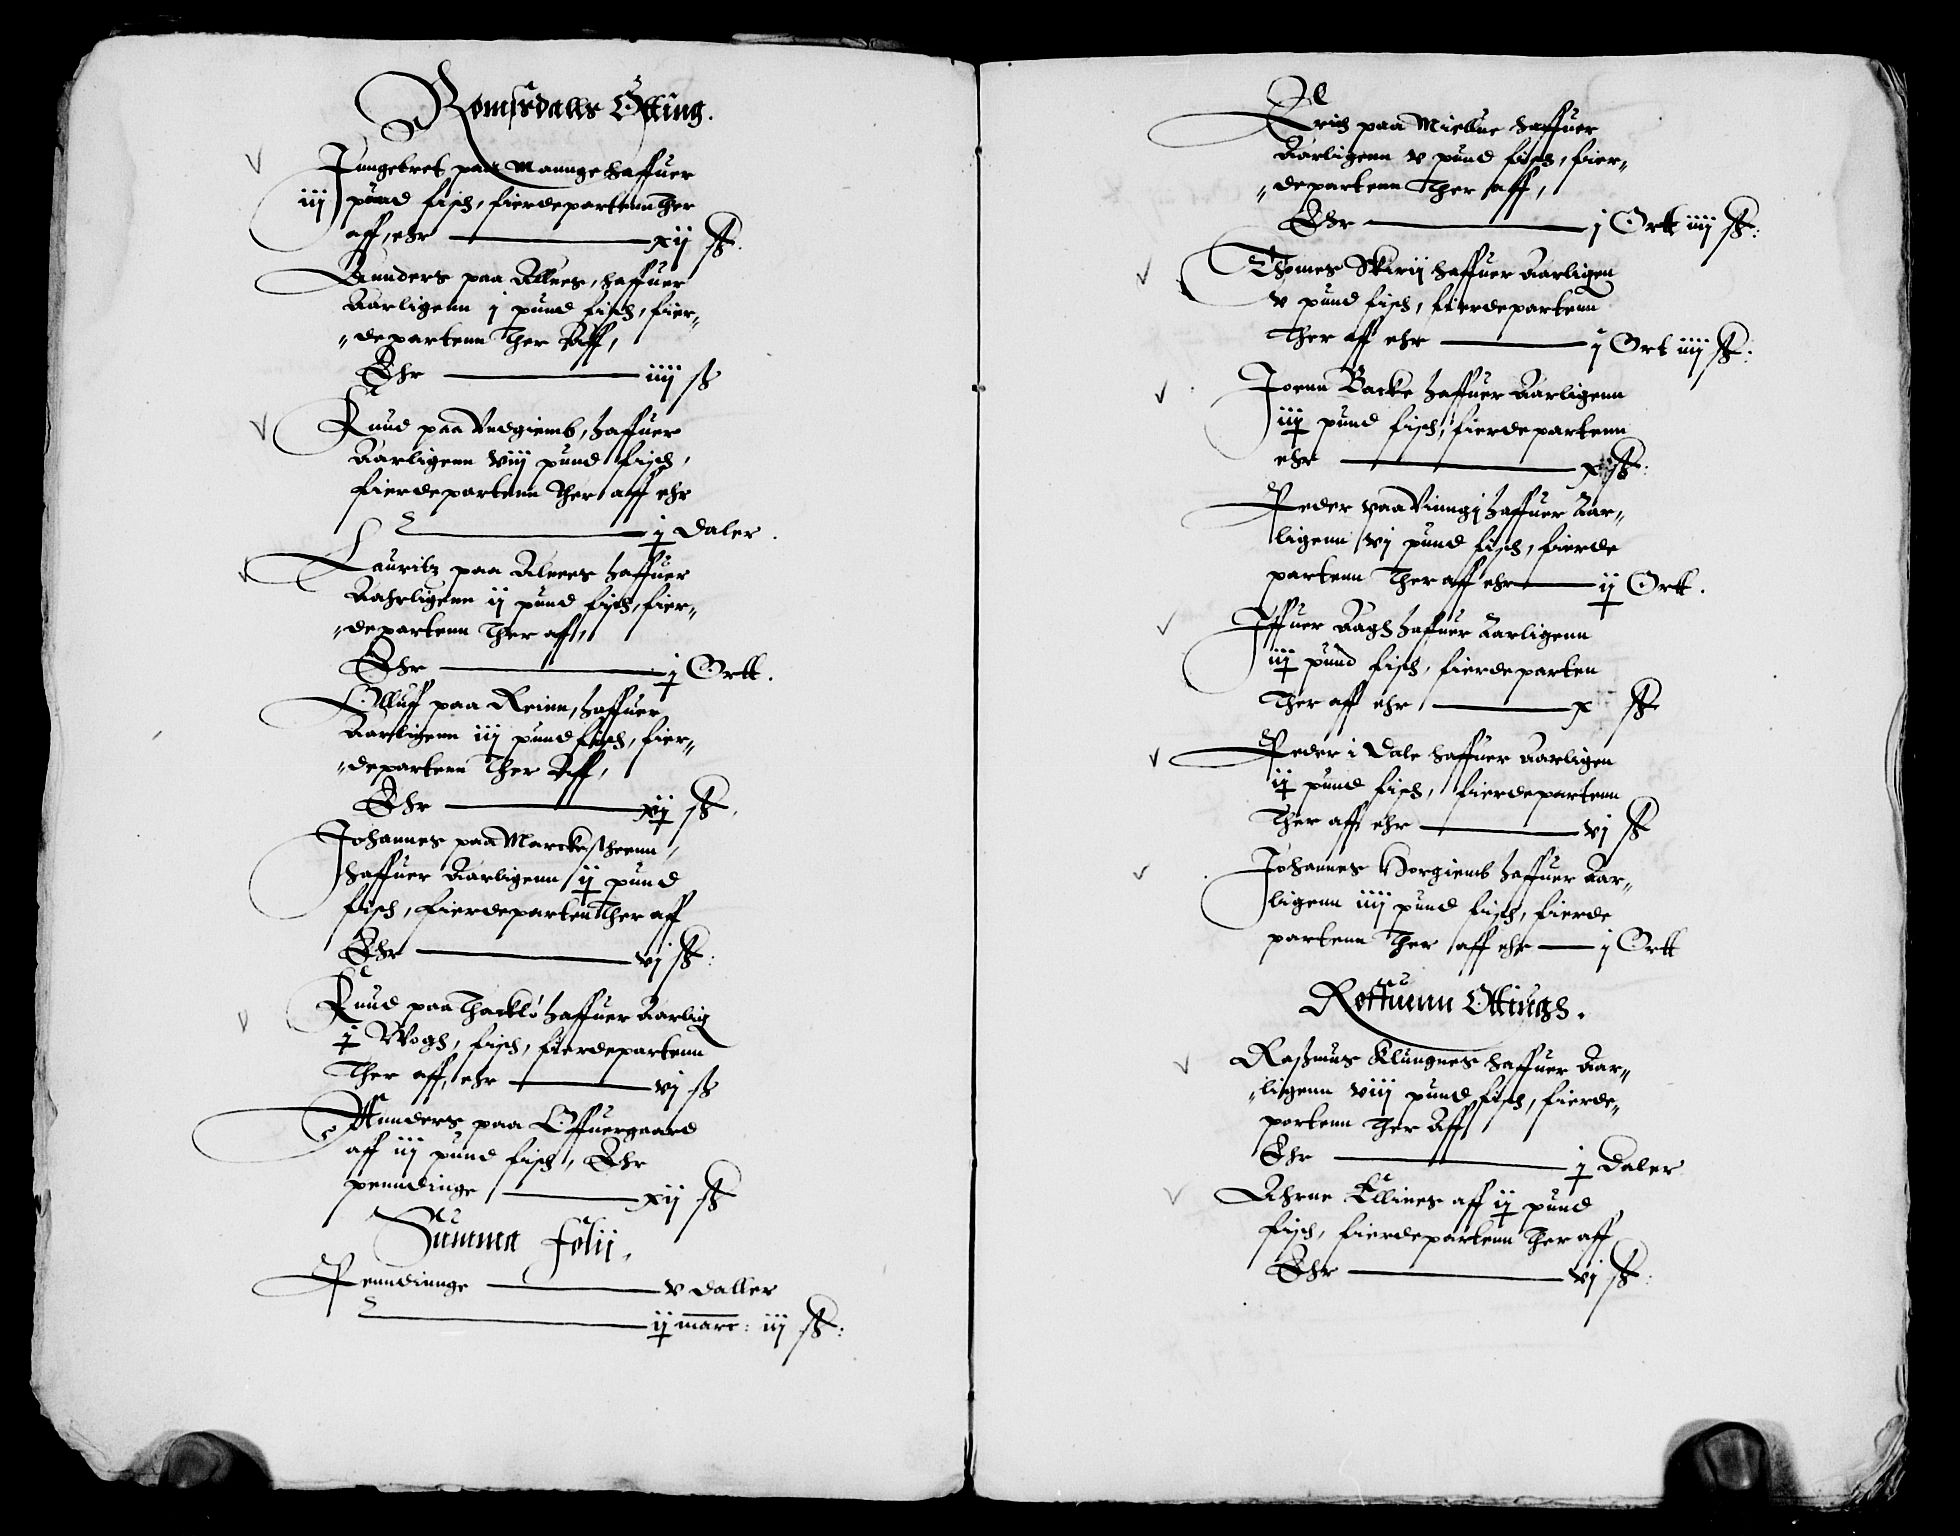 Romssdalls Otting.
Jungebret paa Mannge haffuer
iij pund fisch, fierdepartenn Ther
aff, ehr — xij ß.
Aunders paa Allnes, haffuer
Aarligenn j pund fisch, fier„
„departenn Ther Aff,
Ehr — iiij ß
Knud paa Vedgiemb, haffuer
Aarligenn viij pund fisch,
fierdepartenn Ther aff ehr
— j daler.
Lauritz paa Alnes haffuer
Aahrligenn ij pund fisch, fier„
„departenn Ther aff,
Ehr — j Ortt.
Olluff paa Reinn, haffuer
Aarligenn iij pund fisch, fier„
„departenn Ther Aff,
Ehr — xij ß.
Johannes paa Marckestheenn,
haffuer Aarligenn ij pund
fisch, fierdeparten Ther aff
Ehr — vj ß:
Knud paa Thacklo haffuer Aarlig
j Wogh, fisch, fierdepartenn
Ther aff, ehr — vj ß
Aunders paa Offuergaard
aff iij pund fisch, Ehr
penndinge — xij ß
Summa folij.
Penndinnge — v daller
— ij marc: iij ß:
Erich paa Miellue haffuer
Aarligenn v pund fisch, fier„
„departenn Ther aff,
Ehr — j Ortt iiij ß:
Thomes Skirij haffuer Aarligen
v pund fisch, fierdepartenn
Ther aff ehr — j Ort iiij ß:
Joenn Backe haffuer Aarligenn
iiij pund fisch, fierdepartenn
ehr — ß:
Peder paa Vinngj haffuer Aar„
ligenn vj pund fisch, fierde
partenn Ther aff ehr — ij Ortt.
Iffuer Aagh haffuer Aarligenn
iij pund fisch, fierdeparten
Ther aff ehr — x ß
Peder i Dale haffuer Aarligen
ij pund fisch, fierdepartenn
Ther aff ehr — vj ß
Johannes Horgiemb haffuer Aar„
ligenn iiij pund fisch, fierde
partenn Ther aff ehr — j Ortt
Roffuenn Ottings.
Rasmus Klungnes haffuer Aar„
„ligenn viij pund fisch, fierde„
partenn Ther Aff
Ehr — j Daler
Ahrne Ellines aff ij pund
fisch, fierdepartenn Ther aff
Ehr — vj ß: